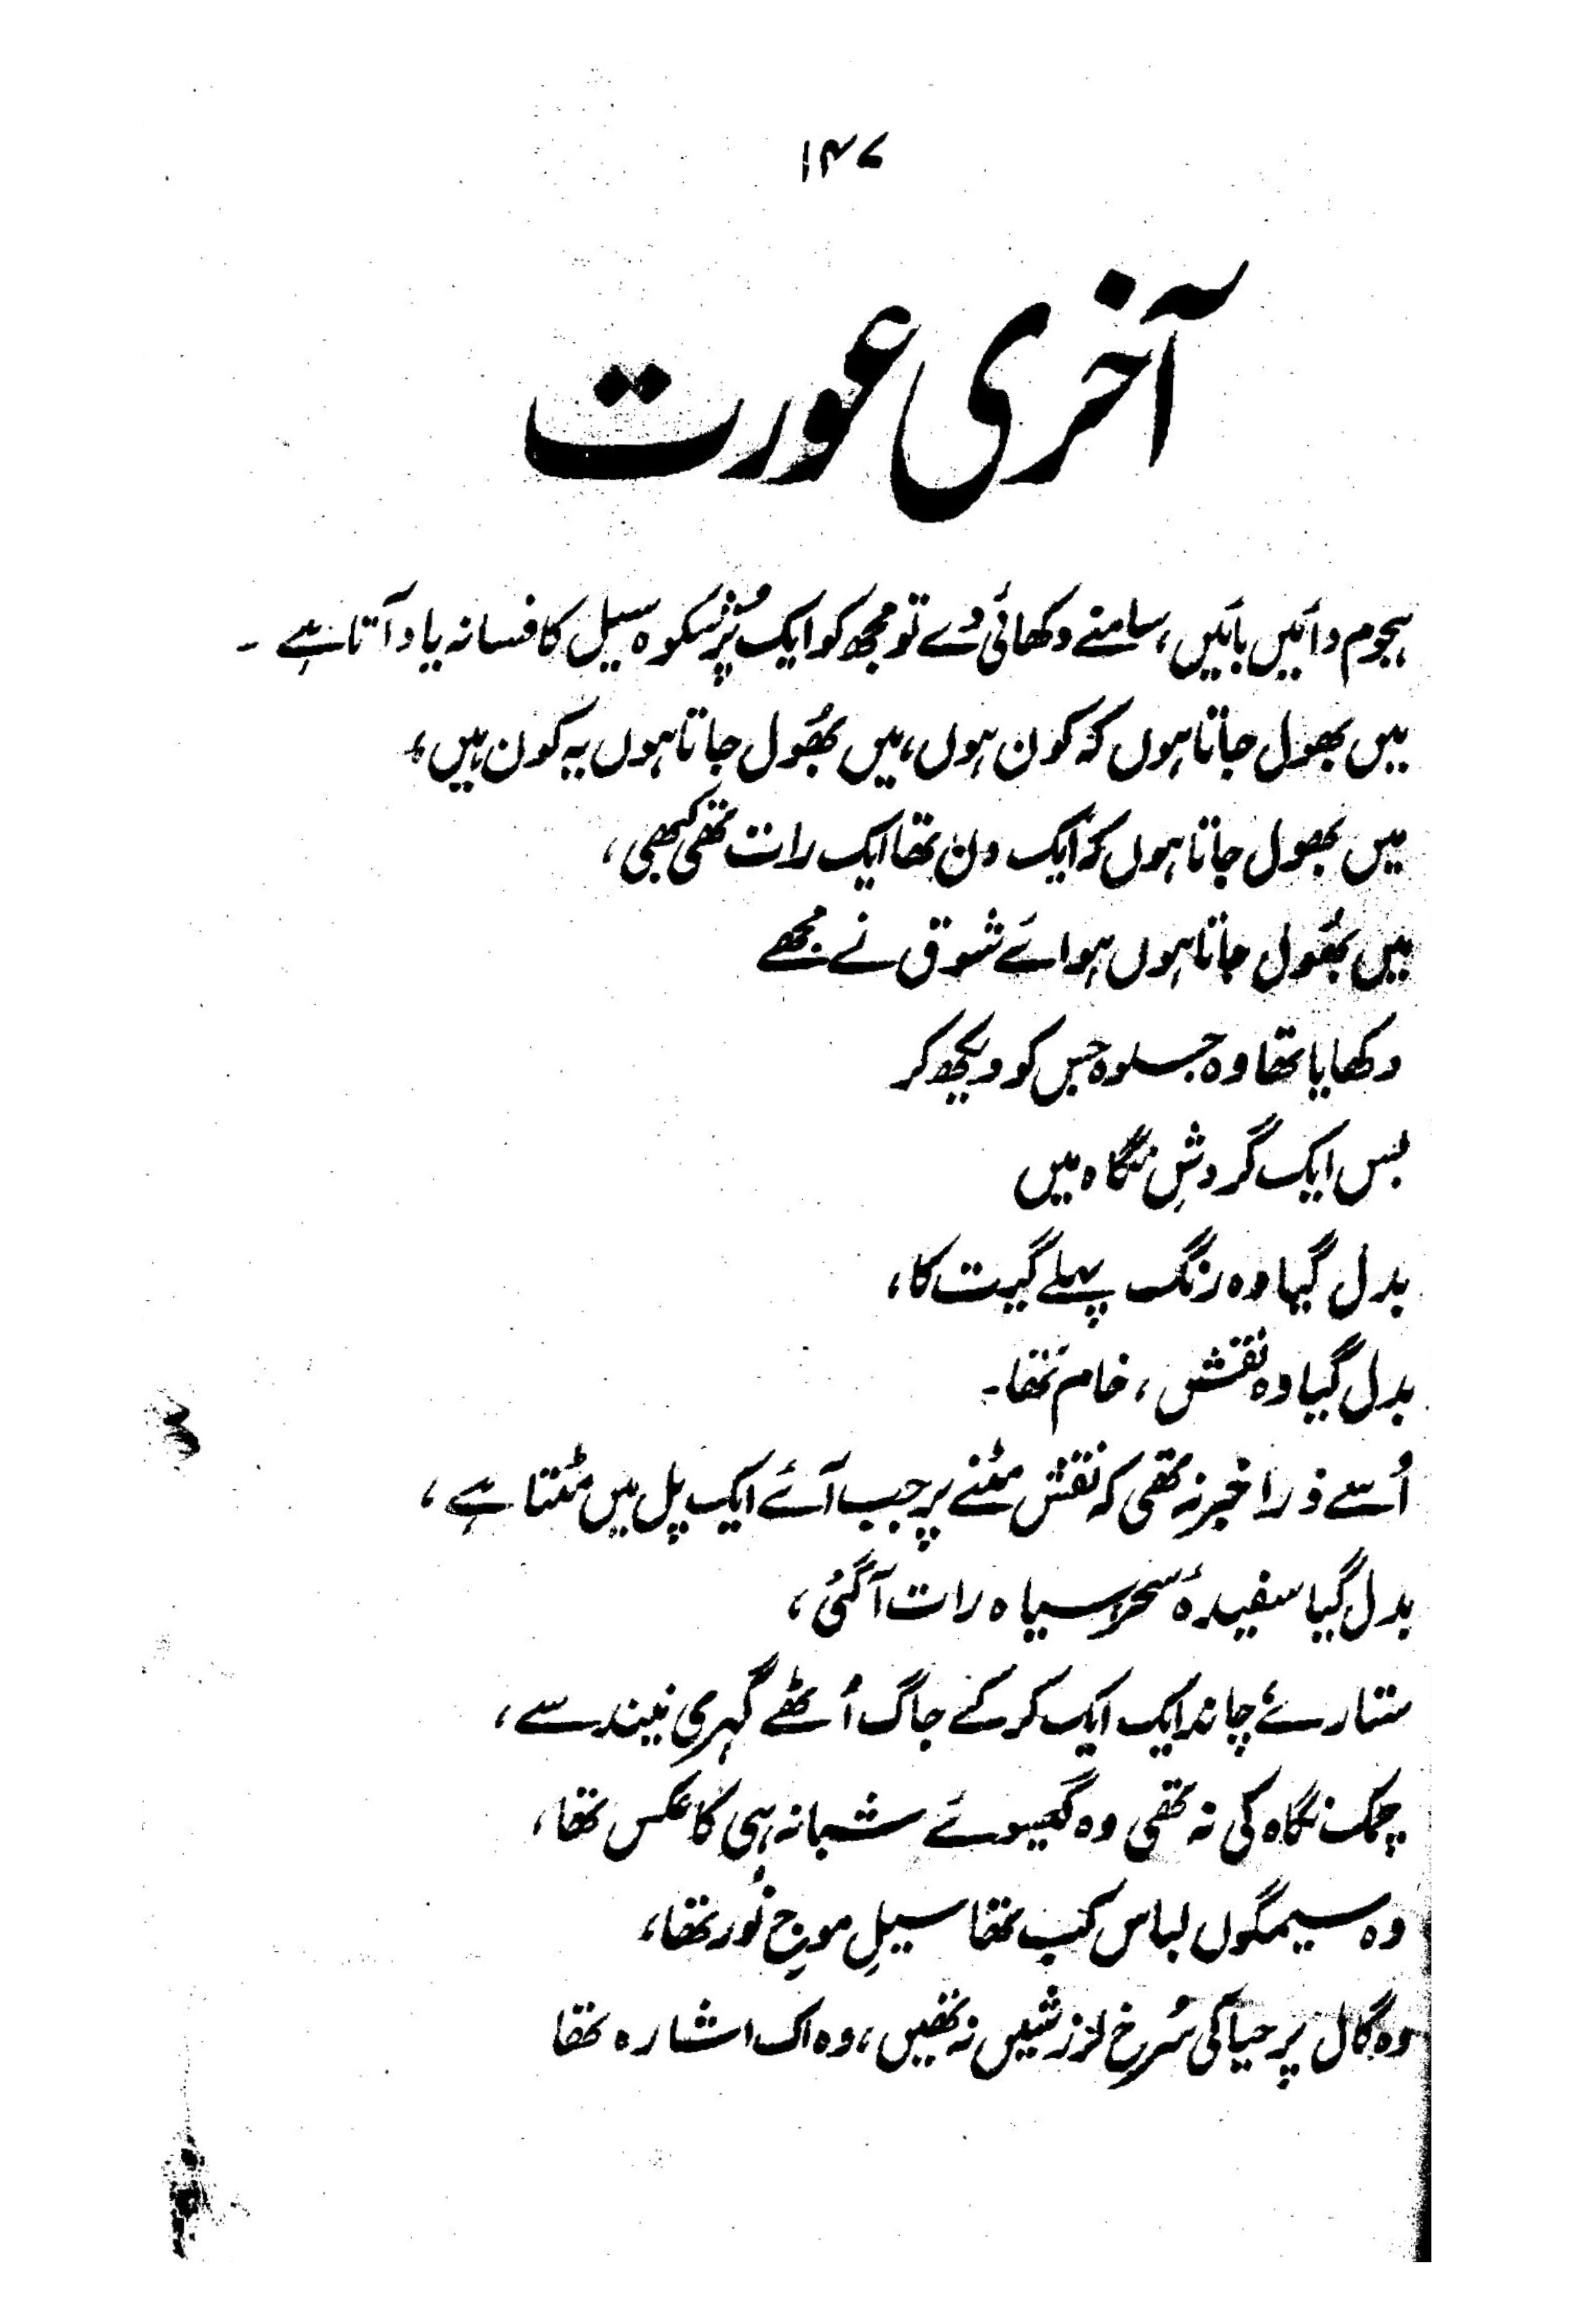 ۱۴۷
آخری عورت
ہجوم دائیں بائیں، سامنے دکھائی دے تو مجھ کو ایک پُرشکوہ سیل کا فسانہ یاد آتا ہے ۔
میں بھول جاتا ہوں کہ کون ہوں، میں بھُول جاتا ہوں یہ کون ہیں،
میں بھول جاتا ہوں کہ ایک دن تھا ایک رات تھی کبھی،
میں بھُول جاتا ہوں ہوائے شوق نے مجھے
دکھایا تھا وہ جلوہ جس کو دیکھ کر
بس ایک گردشِ نگاہ میں
بدل گیا وہ رنگ پہلے گیت کا،
بدل گیا وہ نقش، خام تھا۔
اُسے ذرا خبر نہ تھی کہ نقش مٹنے پر جب آئے ایک پل میں مٹتا ہے،
بدل گیا سفیدۂ سحر سیاہ رات آگئی،
ستارے چاند ایک ایک کر کے جاگ اُٹھے گہری نیند سے،
چمک نگاہ کی نہ تھی وہ گیسوئے شبانہ ہی کا عکس تھا،
وہ سیمگوں لباس کب تھا سیلِ موجِ نُور تھا،
وہ گال پر حیا کی سُرخ لرزشیں نہ تھیں، وہ اک اشارہ تھا